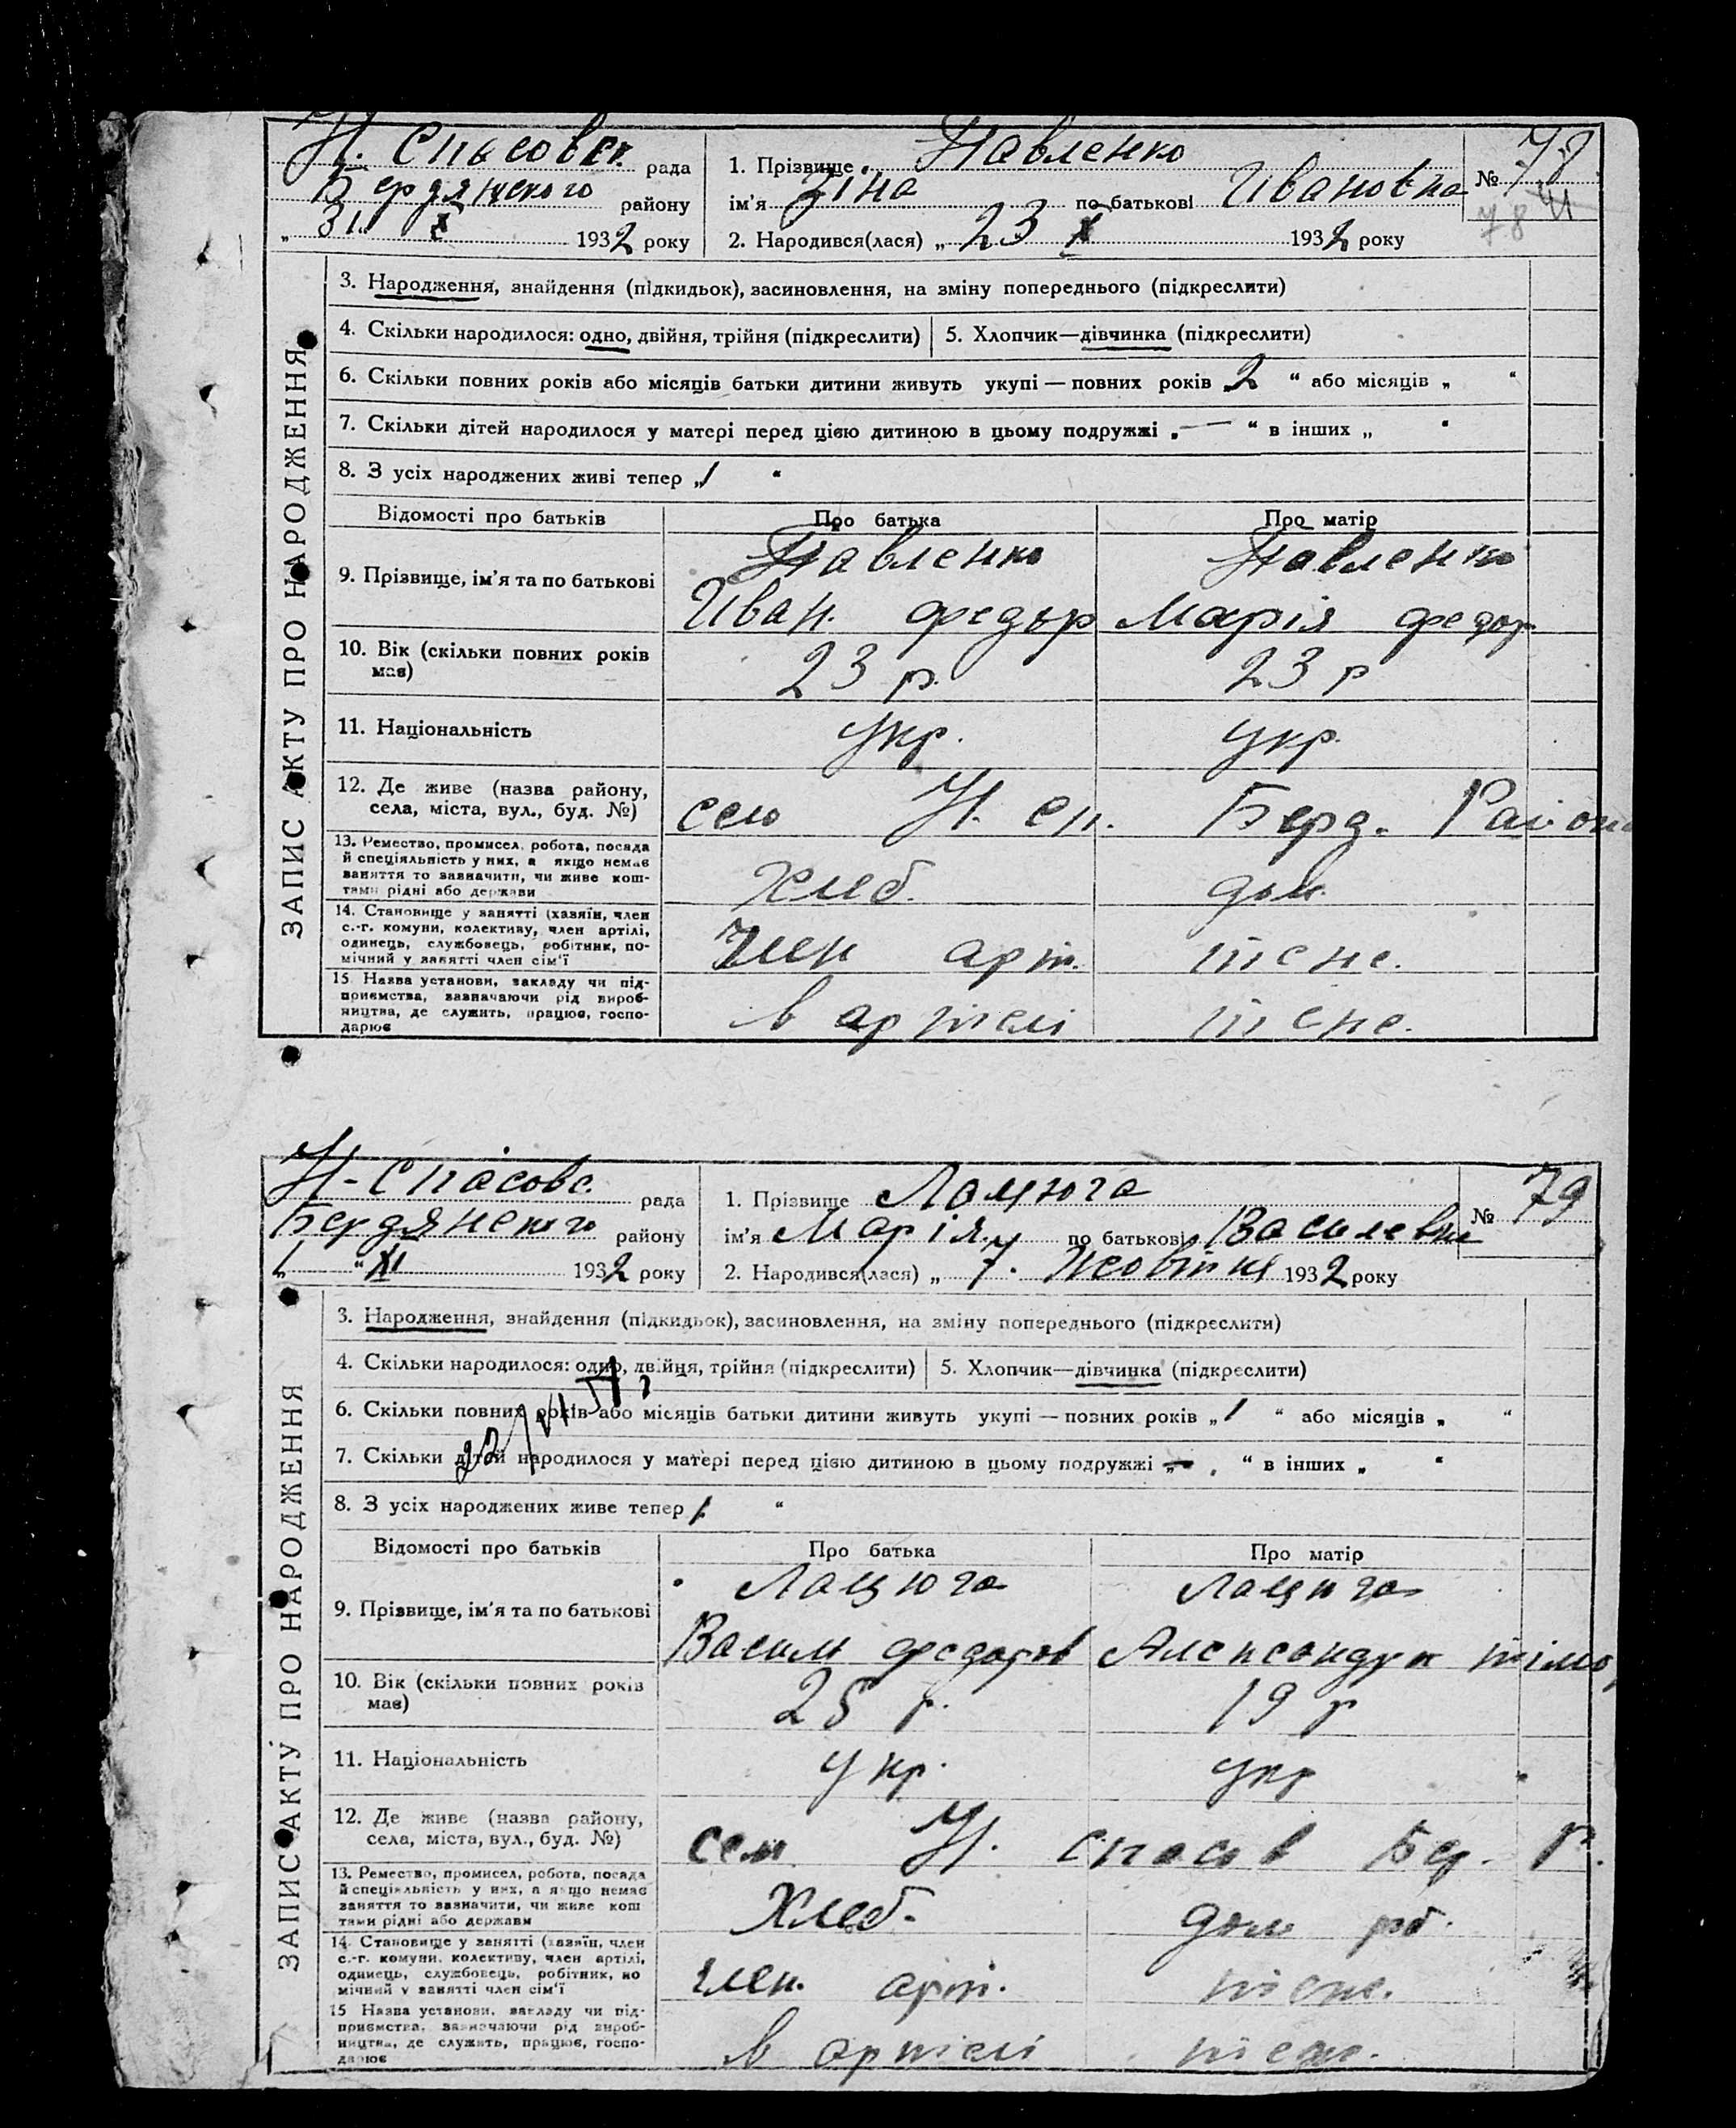 Н. Спасовск. рада
Бердянского району
„31“ X 1932 року
1. Прізвище Павленко
ім’я Зіна по батькові Ивановна
2. Народився(лася) „23 X 1932 року
№ 78
78
ЗАПИС АКТУ ПРО НАРОДЖЕННЯ
3. Народження, знайдення (підкидьок), засиновлення, на зміну попереднього (підкреслити)
4. Скільки народилося: одно, двійня, трійня (підкреслити) 5. Хлопчик—дівчинка (підкреслити)
6. Скільки повних років або місяців батьки дитини живуть укупі — повних років „2 “ або місяців „ “
7. Скільки дітей народилося у матері перед цією дитиною в цьому подружжі „— “ в інших „ “
8. З усіх народжених живі тепер „1 “
Відомості про батьків Про батька Про матір
9. Прізвище, ім’я та по батькові Павленко Павленко
Иван. федър Марія федор
10. Вік (скільки повних років 23 р. 23 р
має)
11. Національність укр. укр.
12. Де живе (назва району,
села, міста, вул., буд. №) село Н. сп. Берд. Района
13. Ремество, промисел, робота, посада
й спеціяльність у них, а якщо немає
заняття то зазначити, чи живе кош- хлеб. дом.
тами рідні або держави
14. Становище у занятті (хазяїн, член
с.-г. комуни, колективу, член артілі,
одинець, службовець, робітник, по- член арт. теж.
мічний у занятті член сім’ї
15. Назва установи, закладу чи під-
приємства, зазначаючи рід вироб-
ництва, де служить, працює, госпо- в артелі
дарює
Н-Спасовс. рада
Бердянского району
„1 “ XI 1932 року
1. Прізвище Лацюга
ім’я Марія по батькові Василевна
2. Народився(лася) „7. Жовтня 1932 року
№ 79
ЗАПИС АКТУ ПРО НАРОДЖЕННЯ
3. Народження, знайдення (підкидьок), засиновлення, на зміну попереднього (підкреслити)
4. Скільки народилося: одно, двійня, трійня (підкреслити) 5. Хлопчик—дівчинка (підкреслити)
6. Скільки повних років або місяців батьки дитини живуть укупі — повних років „1 “ або місяців „ “
7. Скільки дітей народилося у матері перед цією дитиною в цьому подружжі „— “ в інших „ “
8. З усіх народжених живе тепер 1. “
Відомості про батьків Про батька Про матір
9. Прізвище, ім’я та по батькові Лацюга Лацюга
Васил федоров Александра тімо
10. Вік (скільки повних років 25 р. 19 р
має)
11. Національність укр. укр
12. Де живе (назва району,
села, міста, вул., буд. №) село Н. спасов Бер. Р.
13. Ремество, промисел, робота, посада
й спеціяльність у них, а якщо немає
заняття то зазначити, чи живе кош Хлеб. дом рб.
тями рідні або держави
14. Становище у занятті (хазяїн, член
с.-г. комуни, колективу, член артілі,
одинець, службовець, робітник, по член. арт.
мічний у занятті член сім’ї
15 Назва установи, закладу чи під-
приємства, зазначаючи рід вироб-
ництва, де служить, працює, госпо- в артелі
дарює